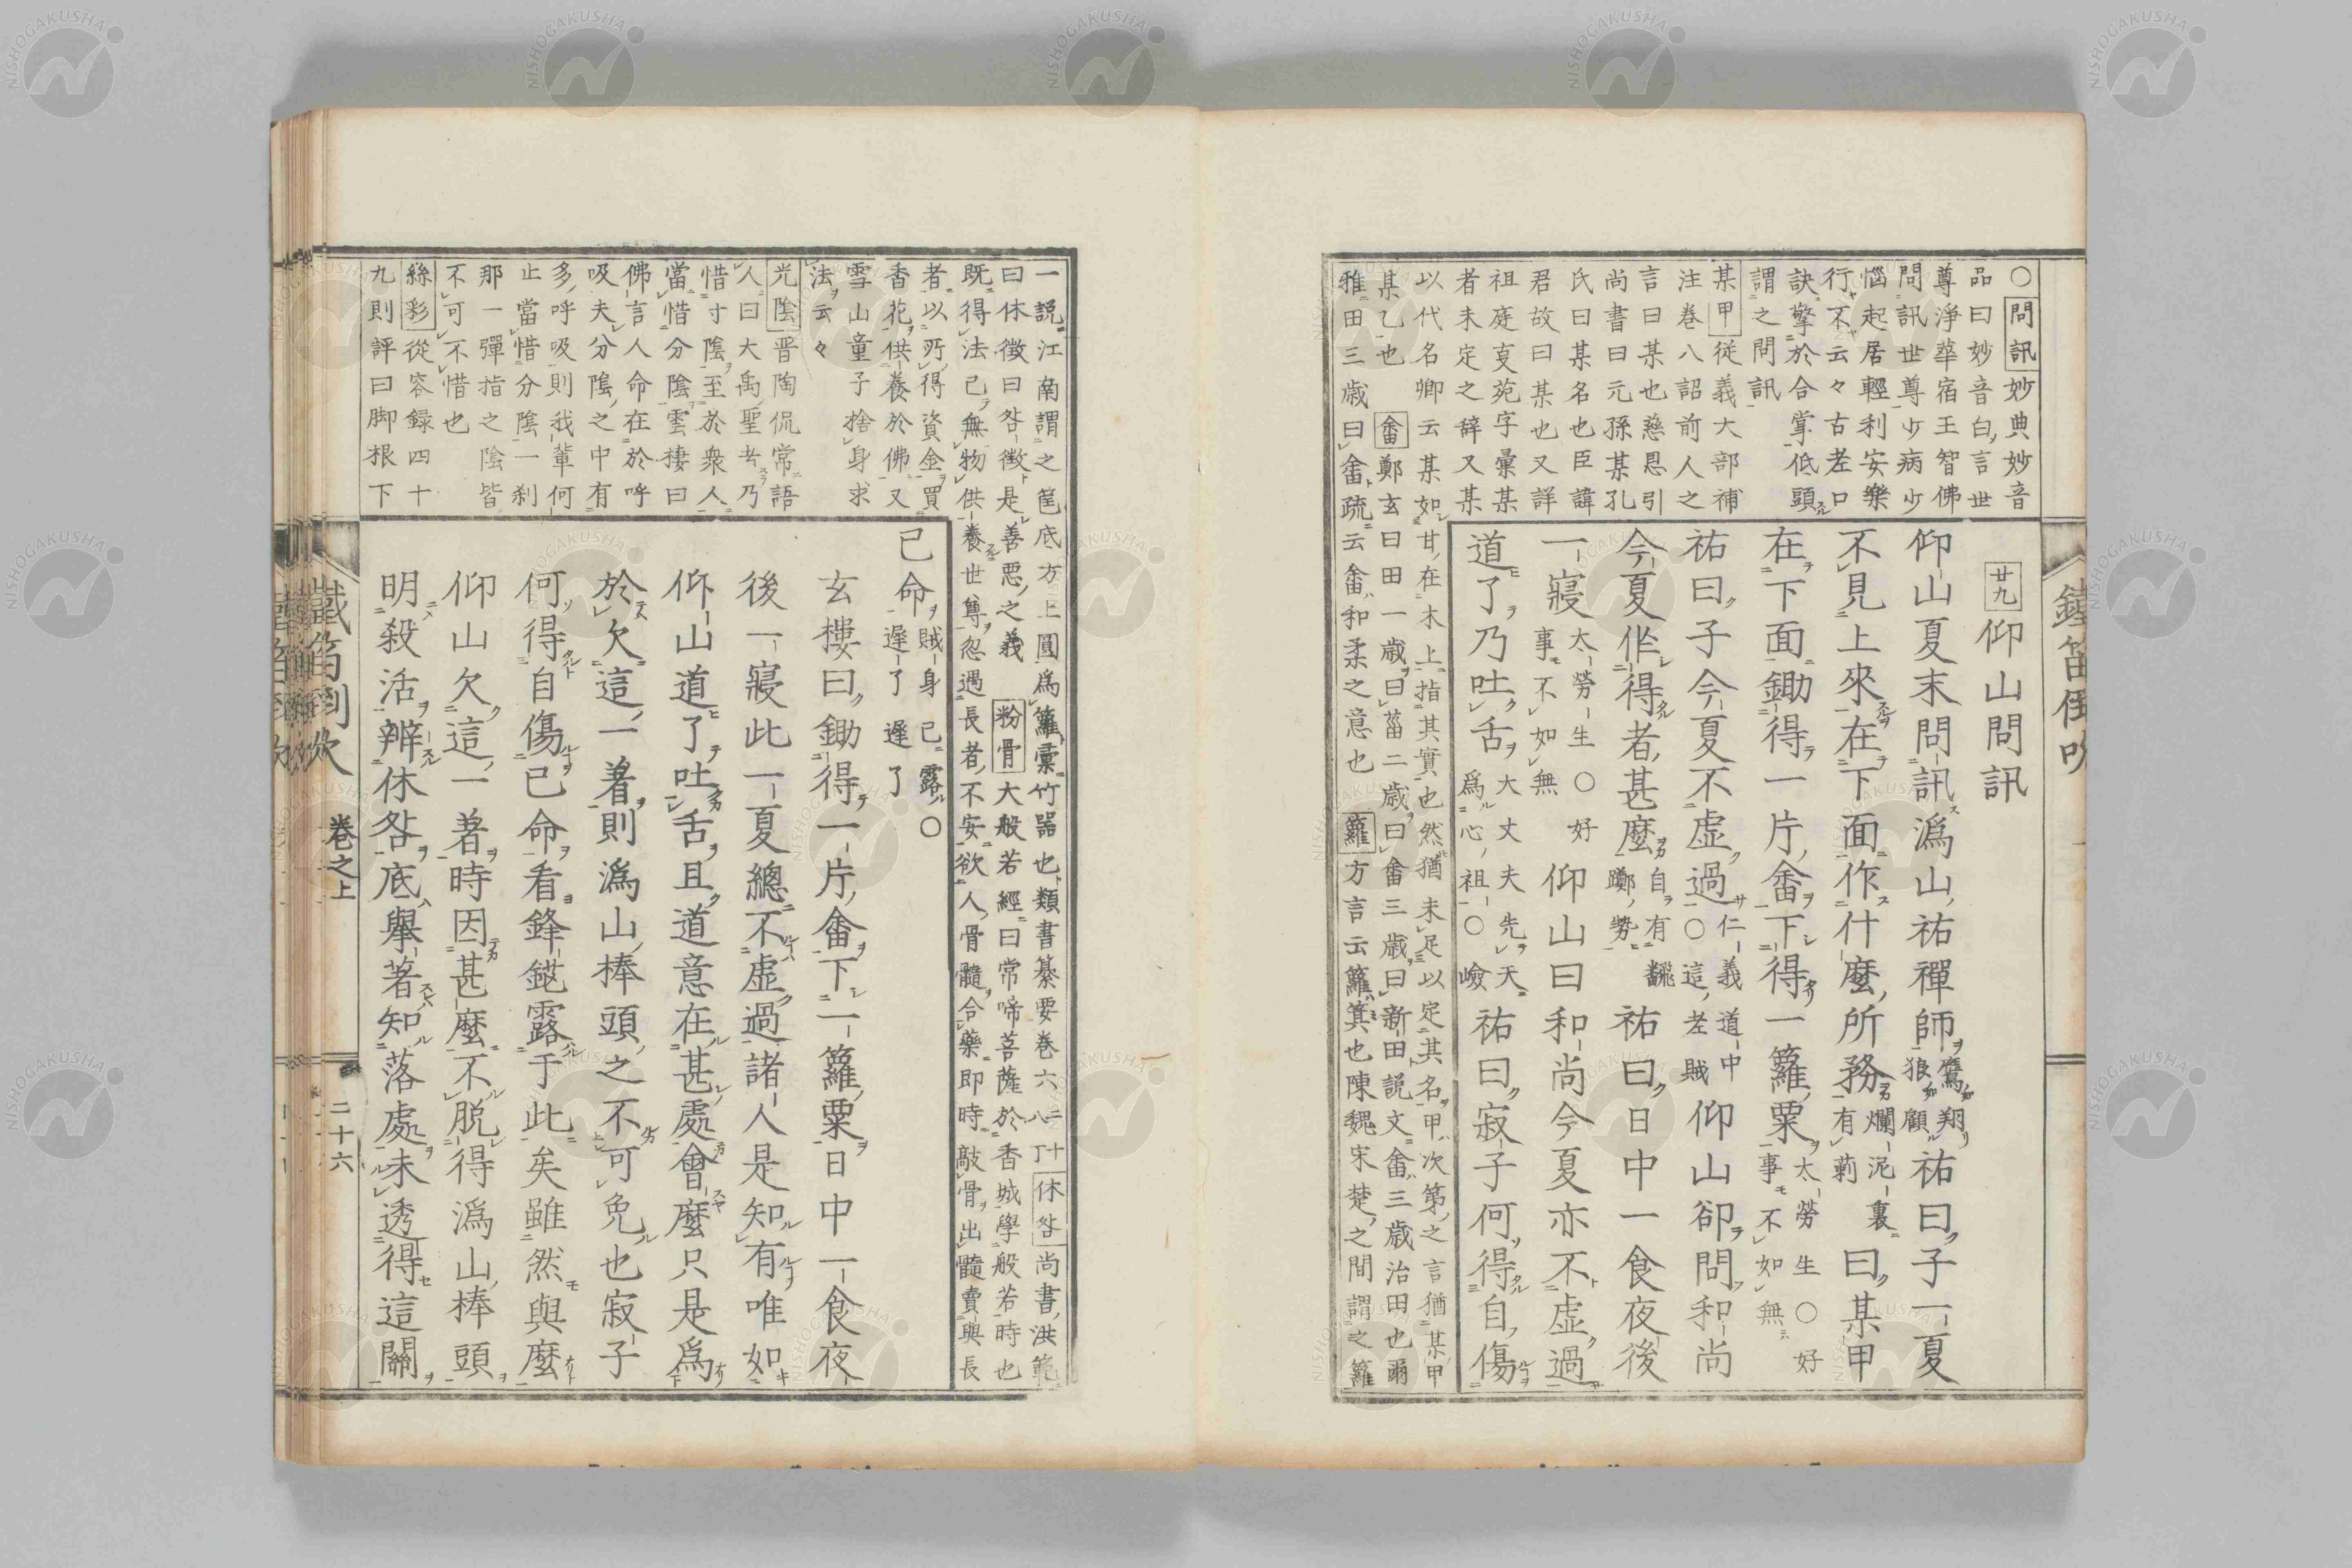 鐵笛倒吹
○問訊妙典妙音
品曰妙音白言世
尊淨華宿王智佛
問訊世尊少病少
惱起居輕利安樂
行不云々古老口
訣擎於合掌低頭
謂之問訊
某甲從義大部補
注卷八詔前人之
言曰某也慈恩引
尚書曰元孫某孔
氏曰某名也臣諱
君故曰某也又詳
祖庭夏苑字彙某
者未定之辭又某
以代名卿云某如甘在木上指其實也然猶未足以定其名甲次第之言猶某甲
某乙也 畬鄭玄曰田一歲曰菑二歲曰畬三歲曰新田説文畬三歲治田也爾
雅田三歲曰畬疏云畬和柔之意也 籮方言云籮箕也陳魏宋楚之間謂之籮
廿九仰山問訊
仰山夏末問訊潙山祐禪師鷹如翔狼如顧祐曰子一夏
不見上來在下面作什麼所務爛泥裏有莿曰某甲
在下面鋤得一片畬下得一籮粟太勞生○好事不如無
祐曰子今夏不虛過仁義道中○這老賊仰山卻問和尚
今夏作得者甚麼自有飜躑勢祐曰日中一食夜後
一寢太勞生○好事不如無仰山曰和尚今夏亦不虛過
道了乃吐舌大丈夫先天爲心祖○嶮祐曰寂子何得自傷
一説江南謂之筐底方上圓爲籮彙竹器也類書纂要卷六二十八丁休咎尚書洪範
曰休徵曰咎徵是善惡之義 粉骨大般若經曰常啼菩薩於香城學般若時也
既得法已無物供養世尊忽遇長者不安欲人骨髓合藥即時敲骨出髓賣與長
者以所得資金買
香花供養於佛又
雪山童子捨身求
法云々
光陰晋陶侃常語
人曰大禹聖者乃
惜寸陰至於衆人
當惜分陰雲棲曰
佛言人命在於呼
吸夫分陰之中有
多呼吸則我輩何
止當惜分陰一刹
那一彈指之陰皆
不可不惜也
絲彩從容録四十
九則評曰脚根下
己命賊身已露○遲了遲了
玄樓曰鋤得一片畬下一籮粟日中一食夜
後一寢此一夏總不虛過諸人是知有唯如
仰山道了吐舌且道意在甚處會麼只是爲
於欠這一著則潙山棒頭之不可免也寂子
何得自傷己命看鋒鋩露于此矣雖然與麼
仰山欠這一著時因甚麼不脱得潙山棒頭
明殺活辨休咎底擧著知落處未透得這關
鐵笛倒吹 卷之上 二十六